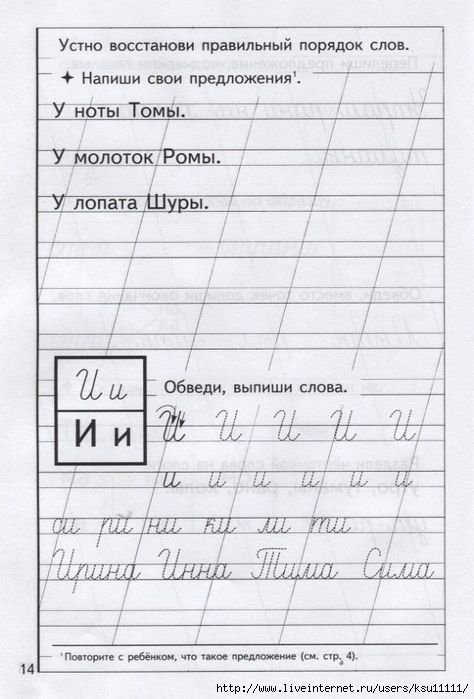 Устно восстанови правильный порядок слов.
✦ Напиши свои предложения¹.
У ноты Томы.
У молоток Ромы.
У лопата Шуры.
И и
Обведи, выпиши слова.
И и
И И И И И
и и и и и
си ри ни ки ли ти
Ирина Инна Тима Сима
¹Повторите с ребёнком, что такое предложение (см. стр. 4).
14
http://www.liveinternet.ru/users/ksu11111/